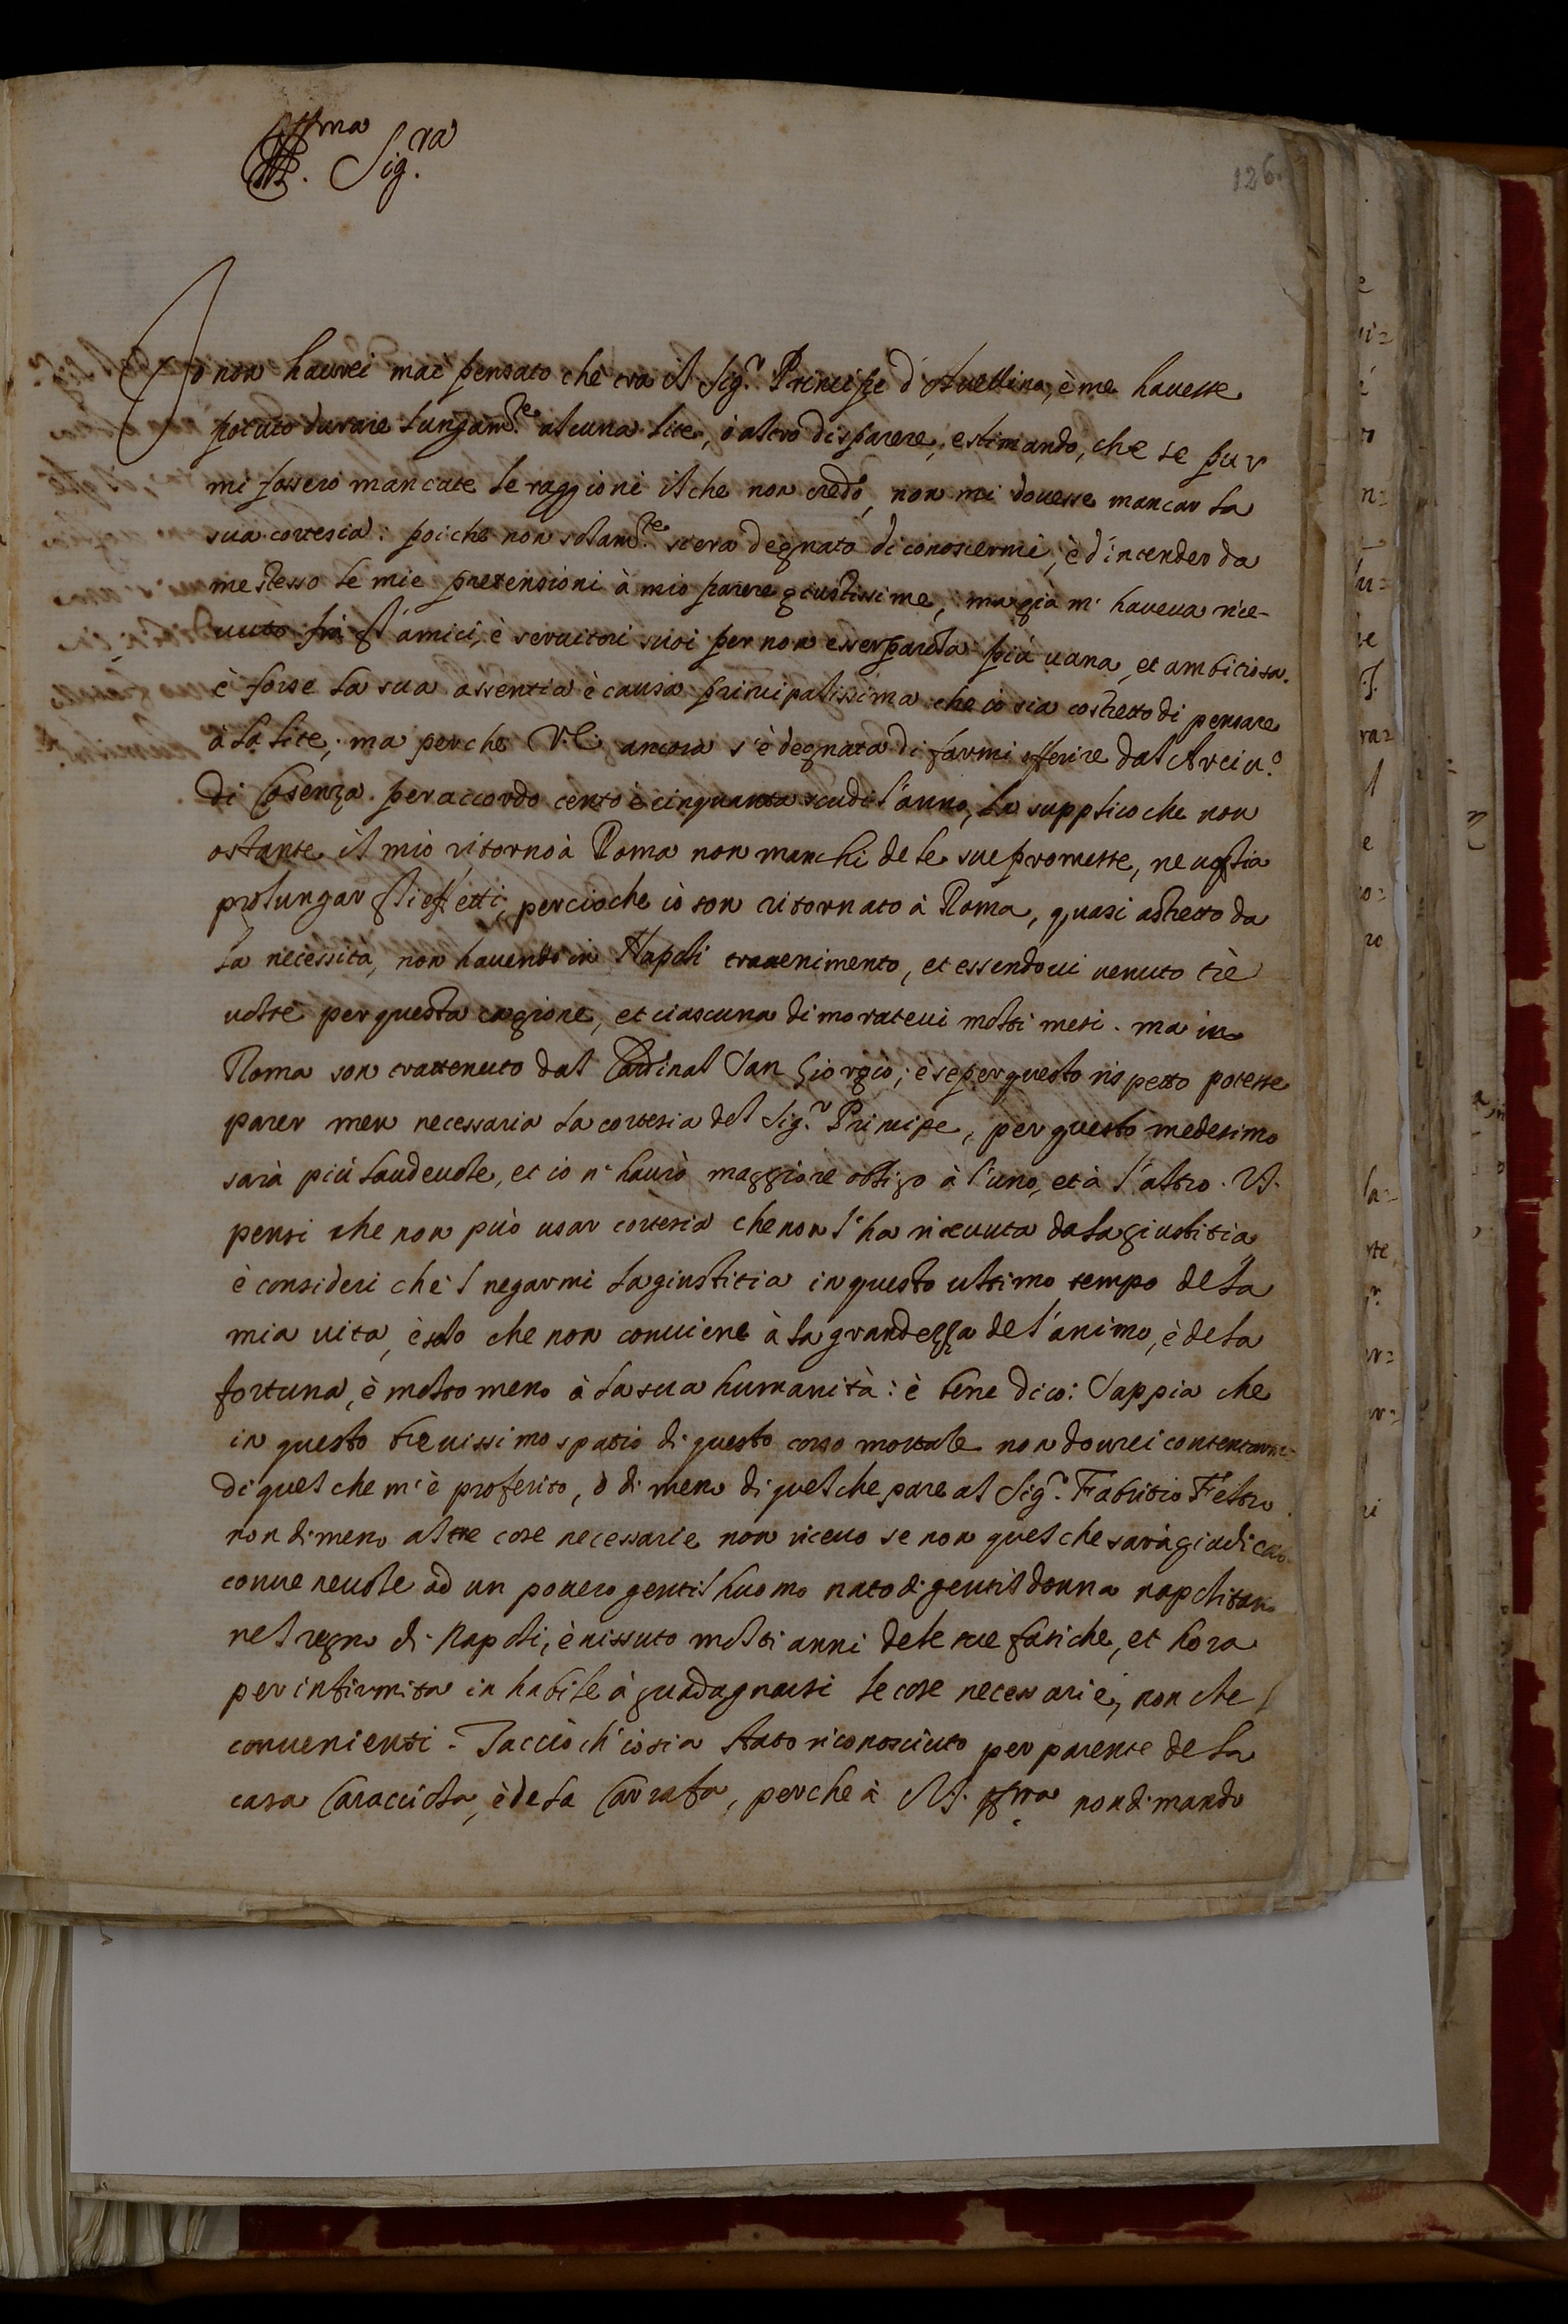 Ill.ma Sig.ra
126.
Io non haurei mai pensato che tra il Sig.r Principe d'Avellino, è me havesse
potuto durare lungam.te alcuna lite, ò altro disparere, estimando, che se pur
mi fossero mancate le raggioni il che non credo, non mi dovesse mancar la
sua cortesia: poiche non solam.te s'era degnato di conoscermi, è d'intender da
me stesso le mie pretensioni à mio parere giustissime, ma già m'haveva rice-
vuto frà gl'amici, è servitori suoi per non esser parola più vana, et ambitiosa.
è forse la sua assentia è causa principalissima che io sia costretto di pensare
à la lite; ma perche V.E. ancora s'è degnata di farmi offerire dal Arciv.o
di Cosenza per accordo cento è cinquanta scudi l'anno, la supplico che non
ostante il mio ritorno à Roma non manchi de le sue promesse, ne voglia
prolungar gli effetti, percioche io son ritornato à Roma, quasi astretto da
la necessità, non havendo in Napoli trattenimento, et essendovi venuto trè
volte per questa cagione, et ciascuna dimoratevi molti mesi. ma in
Roma son trattenuto dal Cardinal San Giorgio; è se per questo rispetto potesse
parer men necessaria la cortesia del Sig.r Principe, per questo medesimo
sarà più laudevole, et io n'haurò maggiore obligo à l'uno, et à l'altro. V.S.
pensi che non può usar cortesia che non l'ha ricevuta da la giustitia
è consideri che'l negarmi la giustitia in questo ultimo tempo de la
mia vita, è solo che non conviene à la grandezza de l'animo, è de la
fortuna, è molto meno à la sua humanità: è bene dico: Sappia che
in questo brevissimo spatio di questo corso mortale non dovrei contentarme
di quel che m'è proferito, ò di meno di quel che pare al Sig.r Fabritio Feltro
non dimeno altre cose necessarie non ricevo se non quel che sarà giudicato
convenevole ad un povero gentil'huomo nato di gentildonna napolitana
nel regno di Napoli, è vissuto molti anni de le sue fatiche, et hora
per infirmita inhabile à guadagnarsi le cose necessarie, non che
convenienti. Taccio ch'io sia stato riconosciuto per parente de la
casa Caracciola, è de la Carrafa, perche à V.S. Ill.ma non dimando